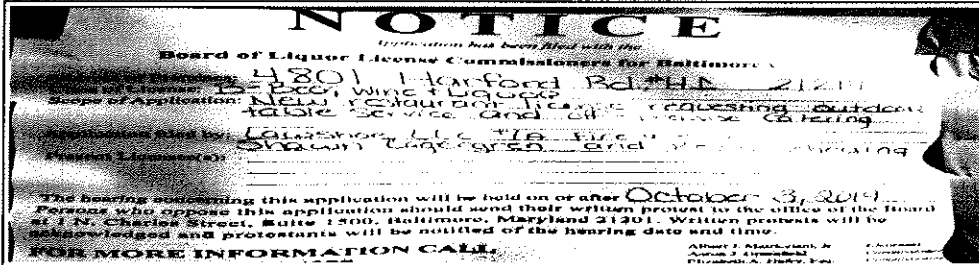 NOTICE
Application has been filed with the
Board of Liquor License Commissioners for Baltimore
4801 Harford Rd #HD 21214
Class of License: B- Beer, Wine + Liquor
Scope of Application: New restaurant license requesting outdoor
table service and off-premise catering
Application filed by: LLC T/A
Shawn Lagergren and
Present Licensee(s):
The hearing concerning this application will be held on or after October 3, 2019
Persons who oppose this application should send their written protest to the office of the Board
at 1 N. Charles Street, Suite 1500, Baltimore, Maryland 21201. Written protests will be
acknowledged and protestants will be notified of the hearing date and time.
FOR MORE INFORMATION CALL:
Albert J. Matricciani, Jr
Aaron J. Greenfield
Elizabeth A. Hafey, Esq